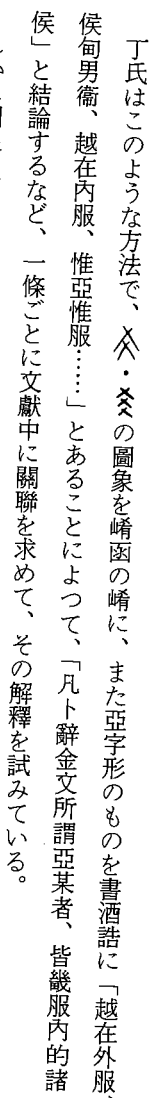 丁氏はこのような方法で、・の圖象を崤函の崤に、また亞字形のものを書酒誥に「越在外服、
侯甸男衞、越在内服、惟亞惟服……」とあることによつて、「凡卜辭金文所謂亞某者、皆畿服内的諸
侯」と結論するなど、一條ごとに文獻中に關聯を求めて、その解釋を試みている。